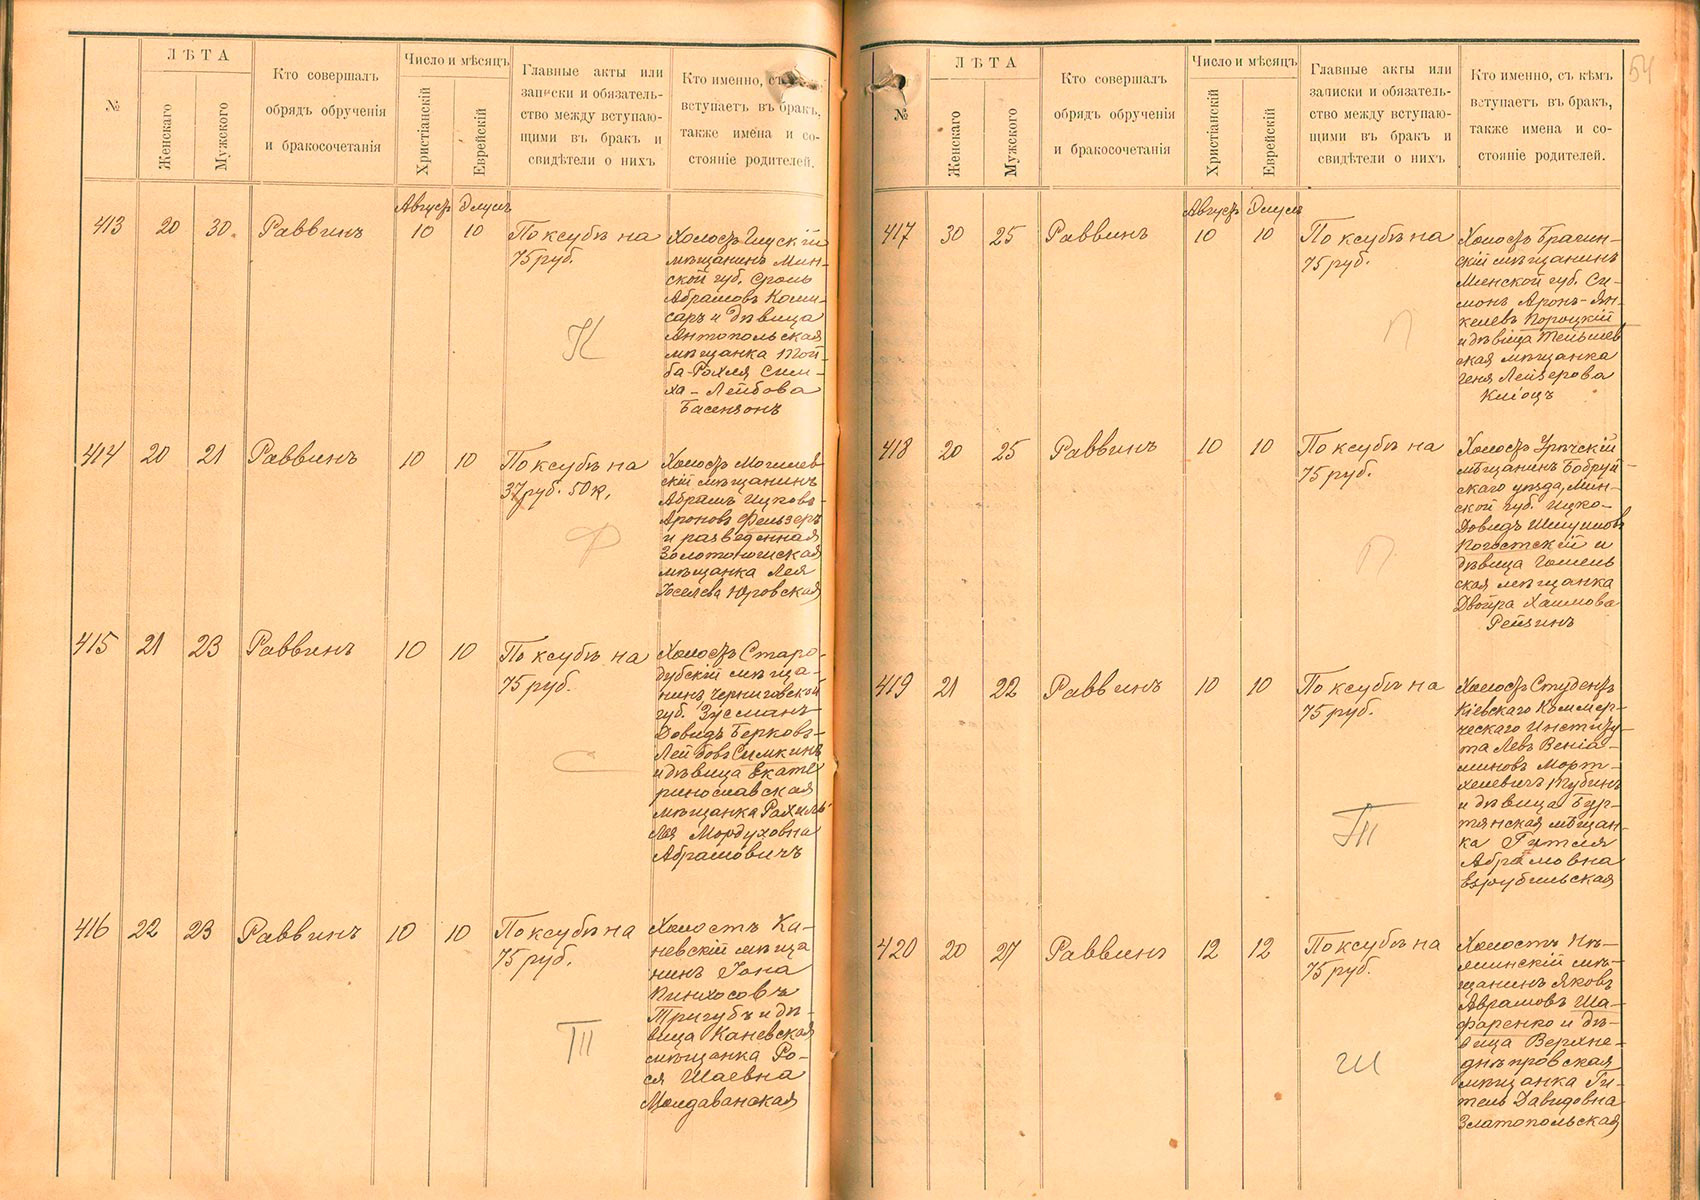 №
ЛѢТА
Женскаго
Мужского
Кто совершалъ
обрядъ обрученія
и бракосочетанія
Число и мѣсяцъ
Христіанскій
Еврейскій
Главные акты или
записки и обязатель-
ство между вступаю-
щими въ бракъ и
свидѣтели о нихъ
Кто именно, съ
вступаетъ въ бракъ,
также имена и со-
стояніе родителей.
Августъ Элулъ
413 20 30 Раввинъ 10 10
По ксубѣ на
75 руб.
К
Холостъ Глускій
мѣщанинъ Мин-
ской губ. Сроль
Абрамовъ Коми-
саръ и дѣвица
Антопольская
мѣщанка Той-
ба-Рохля Сим-
ха-Лейбова
Басензонъ
414 20 21 Раввинъ 10 10
По ксубѣ на
37 руб. 50 к.
Ф
Холостъ Могилев
скій мѣщанинъ
Абрамъ Ицковъ-
Ароновъ Фельзеръ
и разведенная
Золотоношская
мѣщанка Лея
Іоселева Юровская
415 21 23 Раввинъ 10 10
По ксубѣ на
75 руб.
С
Холостъ Старо-
дубскій мѣща-
нинъ Черниговской
губ. Зусманъ-
Довидъ Берковъ-
Лейбовъ Симкинъ
и дѣвица Екате
ринославская
мѣщанка Рахиль-
Лея Мордуховна
Абрамовичъ
416 22 23 Раввинъ 10 10
По ксубѣ на
75 руб.
Т
Холостъ Ка-
невскій мѣща
нинъ Іона
Пинхосовъ
Тригубъ и дѣ-
вица Каневская
мѣщанка Ро-
ся Шаевна
Молдаванская
54
№
ЛѢТА
Женскаго
Мужского
Кто совершалъ
обрядъ обрученія
и бракосочетанія
Число и мѣсяцъ
Христіанскій
Еврейскій
Главные акты или
записки и обязатель-
ство между вступаю-
щими въ бракъ и
свидѣтели о нихъ
Кто именно, съ кѣмъ
вступаетъ въ бракъ,
также имена и со-
стояніе родителей.
Августъ Элулъ
417 30 25 Раввинъ 10 10
По ксубѣ на
75 руб.
П
Холостъ Брагин-
скій мѣщанинъ
Минской губ. Си-
монъ Аронъ-Ян-
келевъ Порецкій
и дѣвица Тельшев
ская мѣщанка
Геня Лейзерова
418 20 25 Раввинъ 10 10
По ксубѣ на
75 руб.
П
Холостъ Уречскій
мѣщанинъ Бобруй-
скаго уѣзда, Мин-
ской губ. Ицко-
Довидъ Шимоновъ
Погостскій и
дѣвица Гомель
ская мѣщанка
Двойра Хаимова
Рейзинъ
419 21 22 Раввинъ 10 10
По ксубѣ на
75 руб.
Т
Холостъ Студентъ
Кіевскаго Коммер-
ческаго Институ-
та Левъ Веніа-
миновъ Морт-
хелевичъ Тубинъ
и дѣвица Бур-
тянская мѣщан-
ка Гитля
Абрамовна
420 20 27 Раввинъ 12 12
По ксубѣ на
75 руб.
Ш
Холостъ Нѣ-
жинскій мѣ-
щанинъ Яковъ
Аврамовъ Ша-
фаренко и дѣ-
вица Верхне-
днѣпровская
мѣщанка Ги-
тель Давидовна
Златопольская